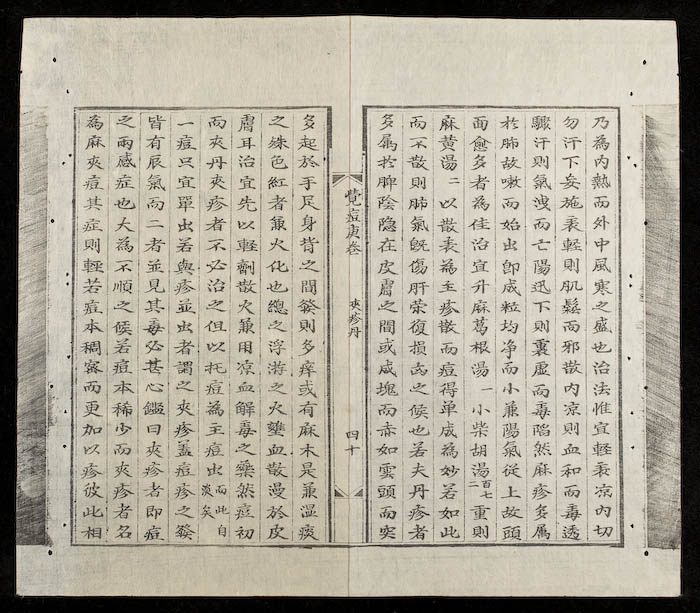 乃為内熱而外中風寒之盛也治法惟宜輕表凉内切
勿汗下妄施表輕則肌鬆而邪散内凉則血和而毒透
驟汗則氣洩而亡陽迅下則裏虚而毒陷然麻疹多屬
於肺故嗽而始出卽成粒均净而小兼陽氣從上故頭
面愈多者為佳治宜升麻葛根湯一小柴胡湯百七二重則
麻黄湯二以散表為主疹散而痘得单成為妙若如此
而不散則肺氣旣傷肝荣復損危之候也若夫丹疹者
多屬於脾陰隐在皮膚之間或成塊而赤如雲頭而突
覺痘庚卷 夾疹丹 四十
多起於手足身背之間發則多痒或有麻木是兼濕痰
之殊色紅者兼火化也總之浮游之火壅血散漫於皮
膚耳治宜先以輕劑散火兼用凉血解毒之藥然痘初
而夾丹夾疹者不必治之但以托痘為主痘出而此自淡矣
一痘只宜單出若與疹並出者謂之夾疹盖痘疹之發
皆有辰氣而二者並見其毒必甚心鑑曰夾疹者即痘
之兩感症也大為不順之候若痘本稀少而夾疹者名
為麻夾痘其症則輕若痘本稠密而更加以疹彼此相